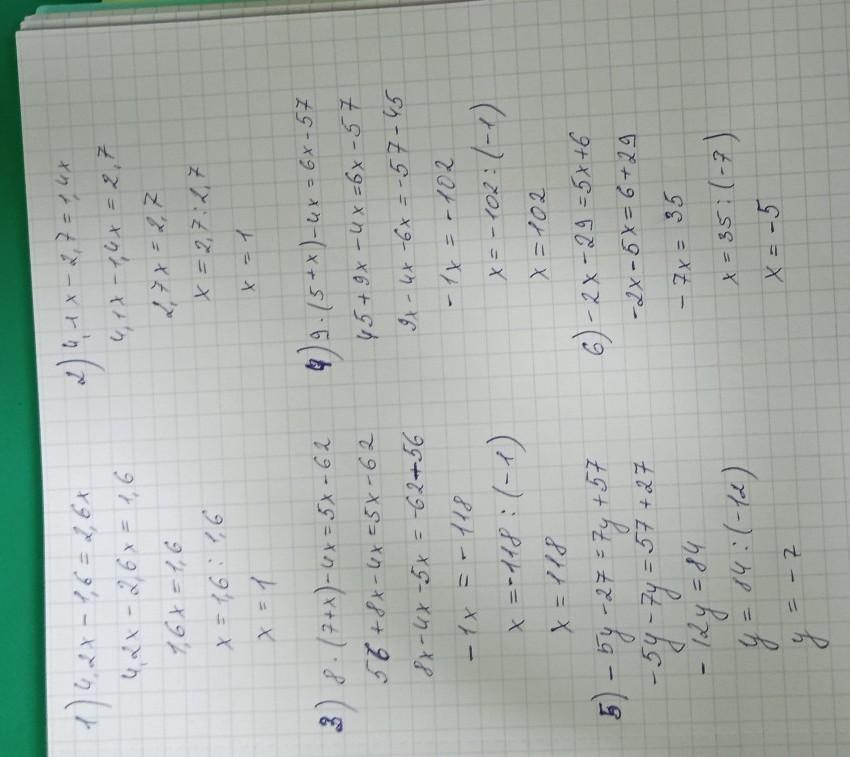 1) 4,2x - 1,6 = 2,6x
4,2x - 2,6x = 1,6
1,6x = 1,6
x = 1,6 : 1,6
x = 1
2) 4,1x - 2,7 = 1,4x
4,1x - 1,4x = 2,7
2,7x = 2,7
x = 2,7 : 2,7
x = 1
3) 8·(7+x)-4x=5x-62
56+8x-4x=5x-62
8x-4x-5x=-62-56
-1x = -118
x=-118 : (-1)
x = 118
4) 9·(5+x)-4x=6x-57
45+9x-4x=6x-57
9x-4x-6x=-57-45
-1x = -102
x = -102 : (-1)
x = 102
5) -5y-27=7y+57
-5y-7y=57+27
-12y=84
y = 84 : (-12)
y = -7
6) -2x-29=5x+6
-2x-5x=6+29
-7x = 35
x = 35 : (-7)
x = -5